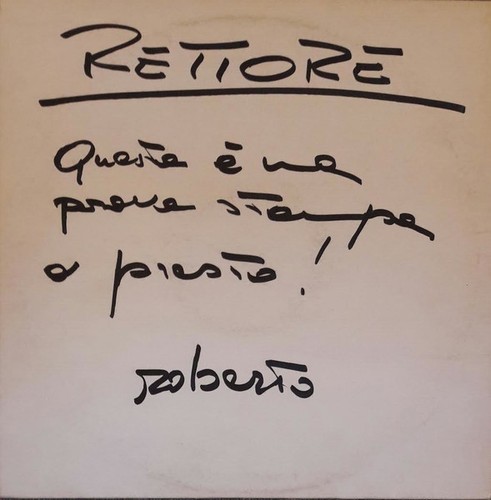 RETTORE
Questa è una
prova stampa
a presto!
roberto